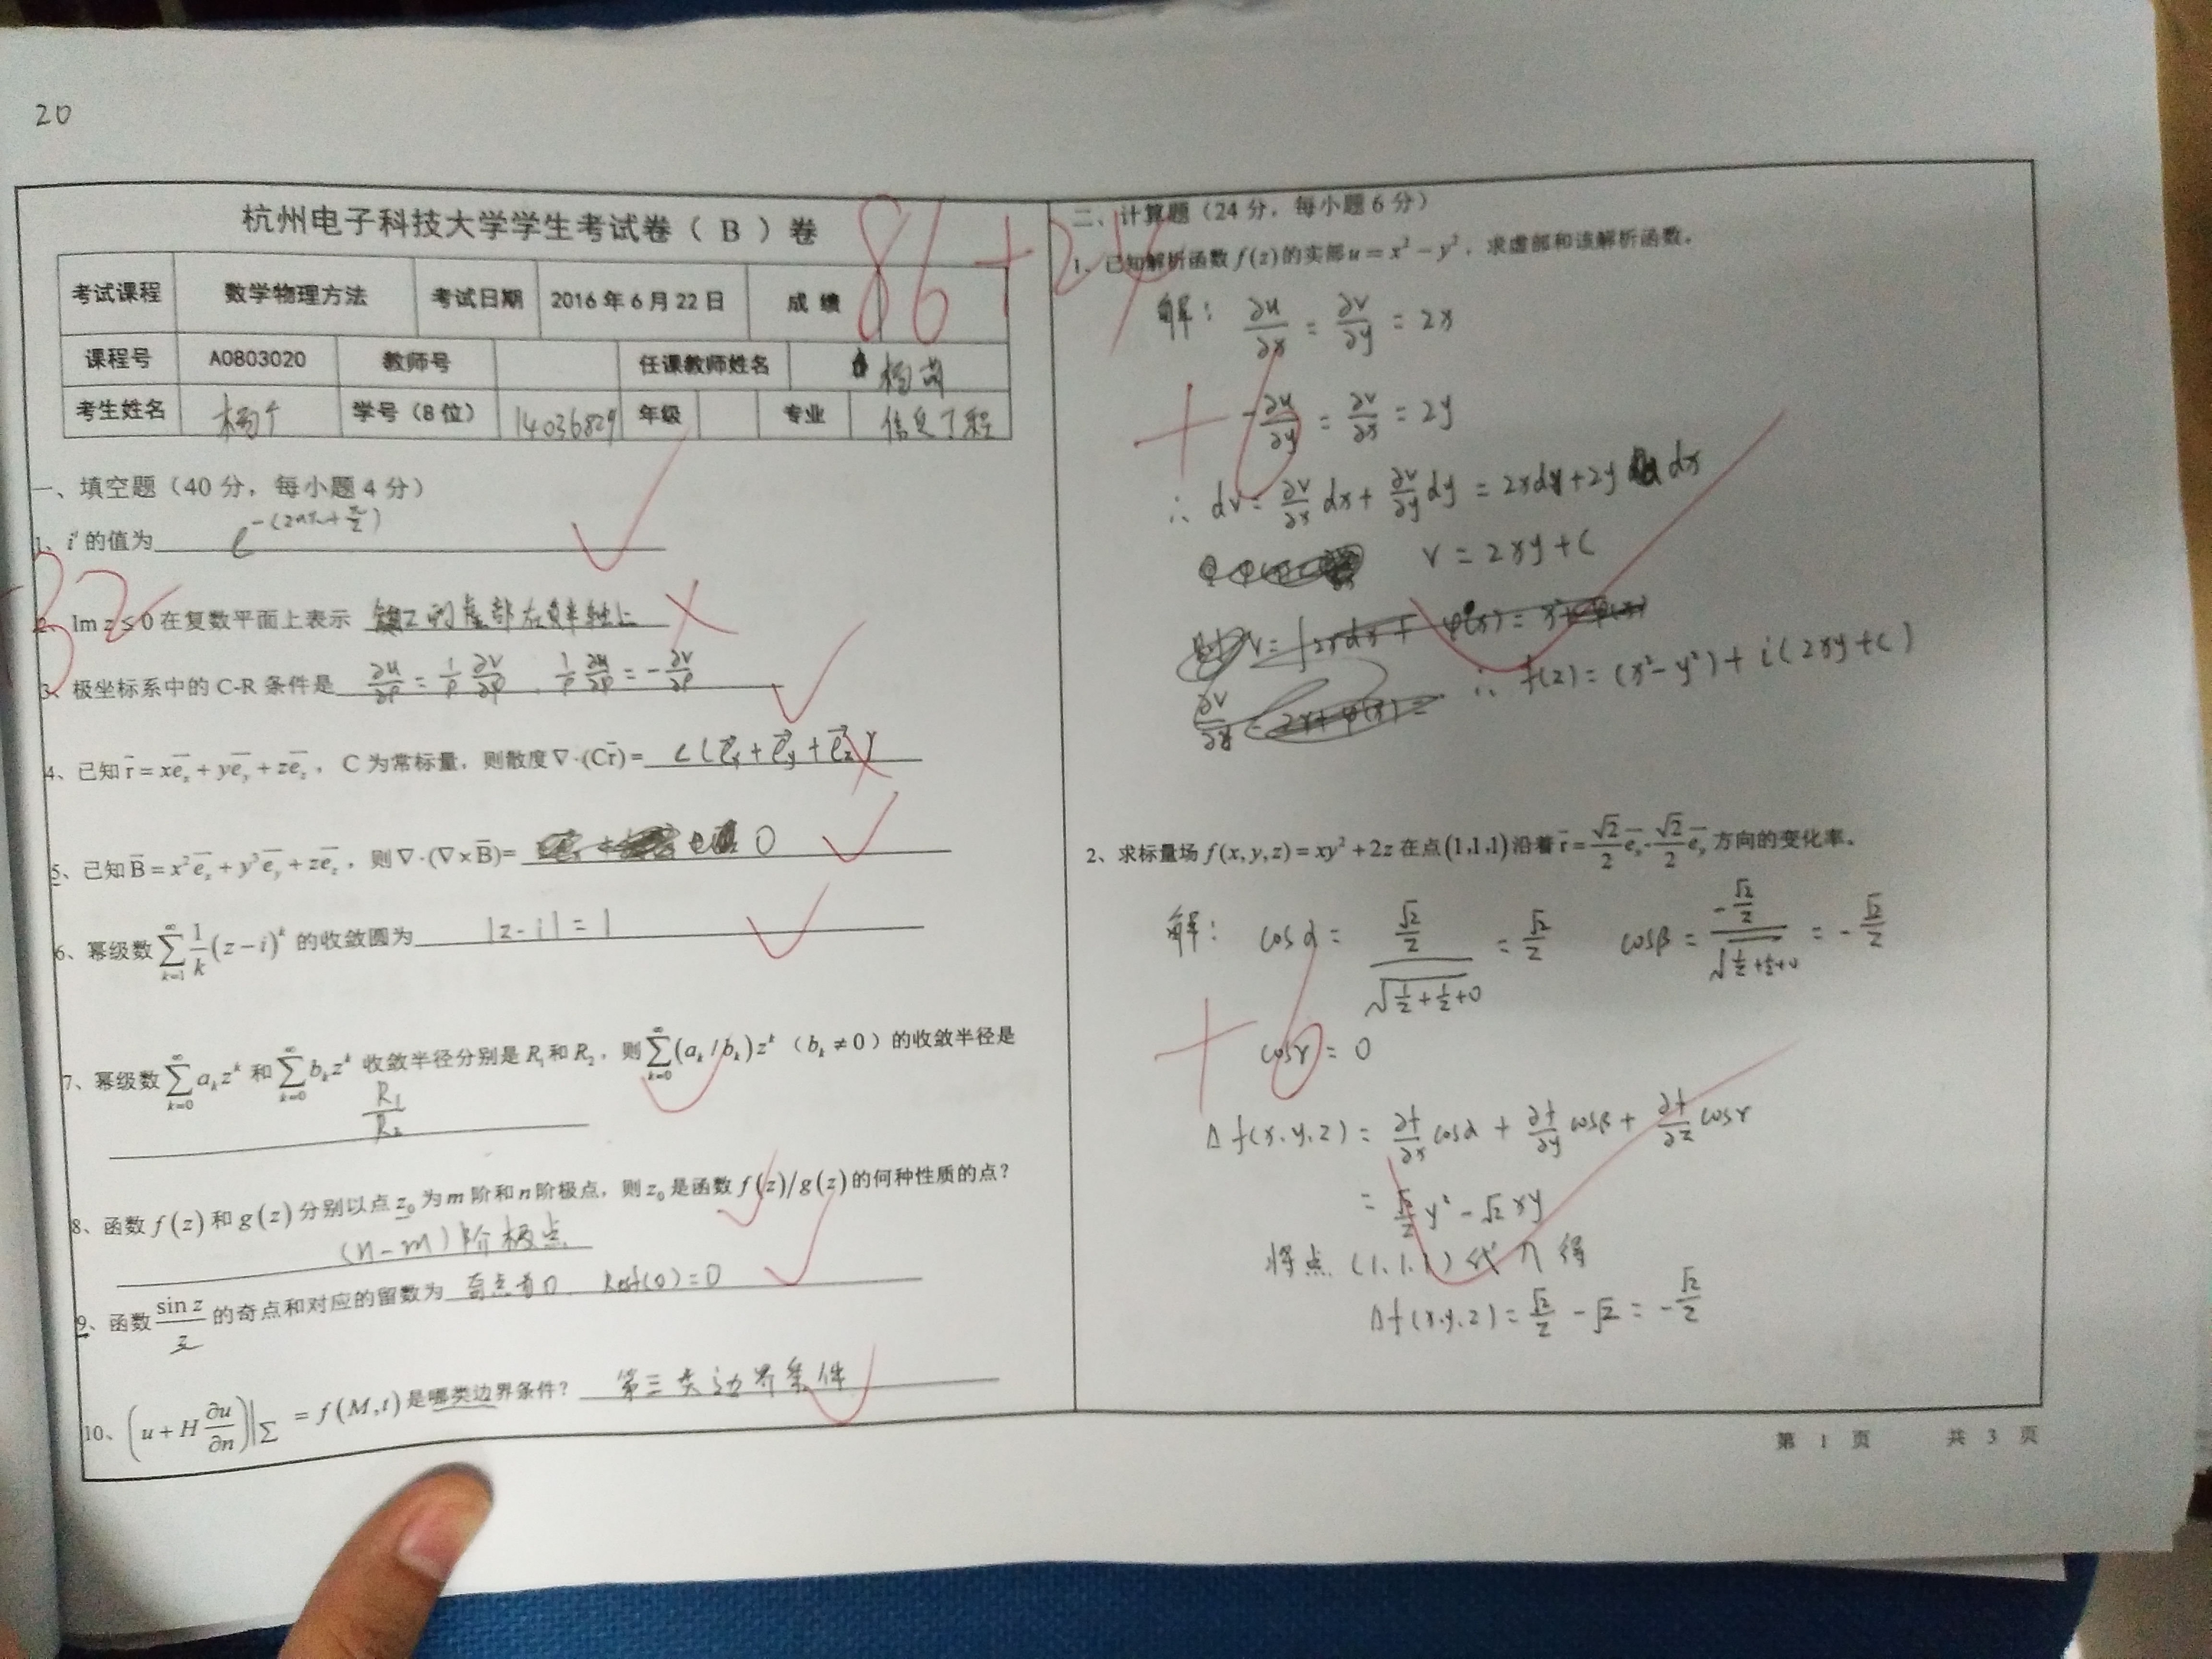 20
杭州电子科技大学学生考试卷（ B ）卷
考试课程 数学物理方法 考试日期 2016 年 6 月 22 日 成 绩 86
课程号 A0803020 教师号 任课教师姓名 杨
考生姓名 杨 学号（8 位） 14036829 年级 专业 信息工程
一、填空题（40 分，每小题 4 分）
32
1、i^i 的值为 e^{-(2nπ+π/2)}
2、Im z ≤ 0 在复数平面上表示 的虚部在负半轴上
3、极坐标系中的 C-R 条件是 ∂u/∂ρ = 1/ρ ∂v/∂φ , 1/ρ ∂u/∂φ = -∂v/∂ρ
4、已知 r̄ = xe_x + ye_y + ze_z，C 为常标量，则散度∇·(Cr̄)= c(e_x + e_y + e_z)
5、已知 B̄ = x²e_x + y³e_y + ze_z，则 ∇·(∇×B̄)= 0
6、幂级数 ∑_{k=1}^{∞} 1/k (z−i)^k 的收敛圆为 |z-i| = 1
7、幂级数 ∑_{k=0}^{∞} a_k z^k 和 ∑_{k=0}^{∞} b_k z^k 收敛半径分别是 R₁ 和 R₂，则 ∑_{k=0}^{∞} (a_k / b_k) z^k （b_k ≠ 0）的收敛半径是
R₁/R₂
8、函数 f(z) 和 g(z) 分别以点 z₀ 为 m 阶和 n 阶极点，则 z₀ 是函数 f(z)/g(z) 的何种性质的点？
(n-m) 阶极点
9、函数 sin z / z 的奇点和对应的留数为 奇点有0. Resf(0)=0
10、(u + H ∂u/∂n)|_Σ = f(M,t) 是哪类边界条件？ 第三类边界条件
二、计算题（24 分，每小题 6 分）
+24
1、已知解析函数 f(z) 的实部 u = x² − y²，求虚部和该解析函数。
解： ∂u/∂x = ∂v/∂y = 2x
+6
-∂u/∂y = ∂v/∂x = 2y
∴ dv = ∂v/∂x dx + ∂v/∂y dy = 2xdy + 2y dx
v = 2xy + C
∴ f(z) = (x²-y²) + i(2xy+c)
2、求标量场 f(x,y,z) = xy² + 2z 在点 (1,1,1) 沿着 r̄ = √2/2 e_x - √2/2 e_y 方向的变化率。
解： cosα = (√2/2)/√(1/2+1/2+0) = √2/2 cosβ = (-√2/2)/√(1/2+1/2+0) = -√2/2
+6
cosγ = 0
Δf(x.y.z) = ∂f/∂x cosα + ∂f/∂y cosβ + ∂f/∂z cosγ
= √2/2 y² - √2 xy
将点 (1.1.1) 代入得
Δf(x.y.z) = √2/2 - √2 = -√2/2
第 1 页 共 3 页